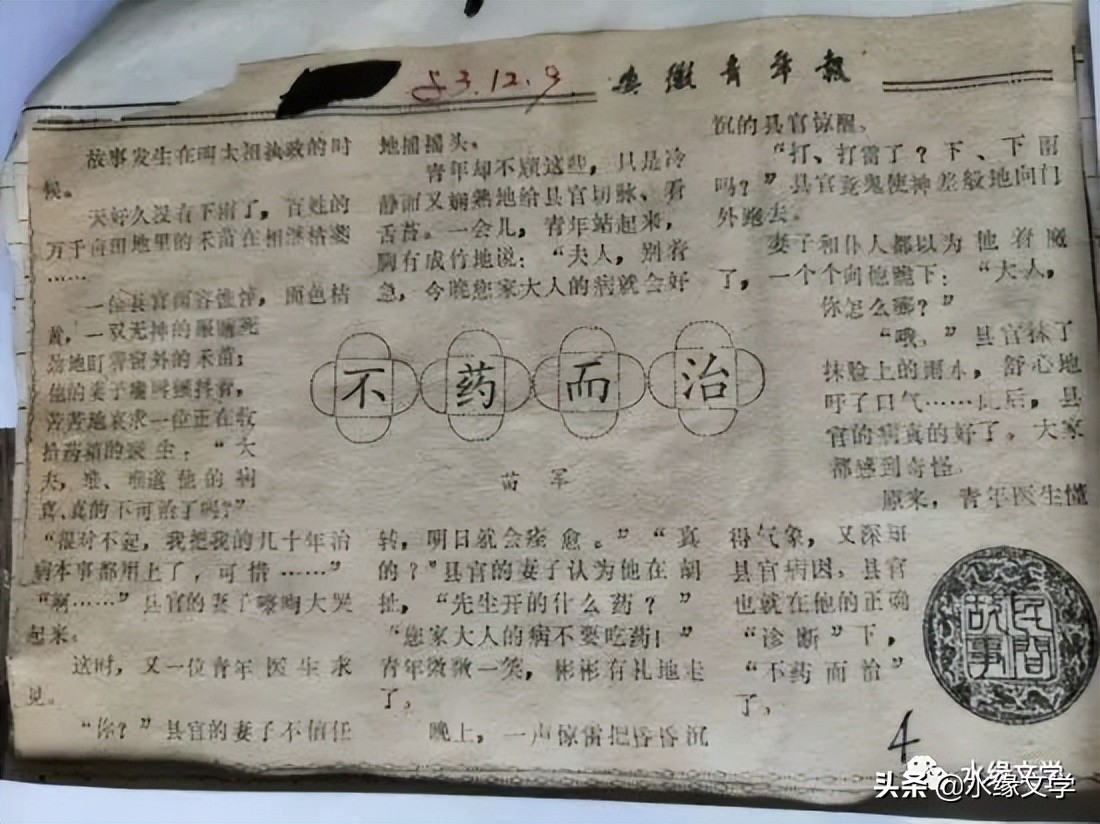 83.12.9
安徽青年报
故事发生在明太祖执政的时
候。
天好久没有下雨了，百姓的
万千亩田地里的禾苗在相继枯萎
……
一位县官面容憔悴，面色枯
黄，一双无神的眼睛死
劲地盯着窗外的禾苗；
他的妻子嘴唇颤抖着，
苦苦地哀求一位正在收
拾药箱的医生：“大
夫，难、难道他的病
真、真的不可治了吗？”
“很对不起，我把我的几十年治
病本事都用上了，可惜……”
“啊……”县官的妻子嚎啕大哭
起来。
这时，又一位青年医生求
见。
“你？”县官的妻子不信任
地摇摇头。
青年却不顾这些，只是冷
静而又娴熟地给县官切脉、看
舌苔。一会儿，青年站起来，
胸有成竹地说：“夫人，别着
急，今晚您家大人的病就会好
不药而治
苗军
转，明日就会痊愈。”“真
的？”县官的妻子认为他在胡
扯，“先生开的什么药？”
“您家大人的病不要吃药！”
青年微微一笑，彬彬有礼地走
了。
晚上，一声惊雷把昏昏沉
沉的县官惊醒。
“打、打雷了？下、下雨
吗？”县官竟鬼使神差般地向门
外跑去。
妻子和仆人都以为他着魔
了，一个个向他跪下：“大人，
你怎么啦？”
“哦，”县官抹了
抹脸上的雨水，舒心地
吁了口气……此后，县
官的病真的好了。大家
都感到奇怪。
原来，青年医生懂
得气象，又深知
县官病因，县官
也就在他的正确
“诊断”下，
“不药而治”
了。
民间故事
4
水缘文学
头条 @水缘文学